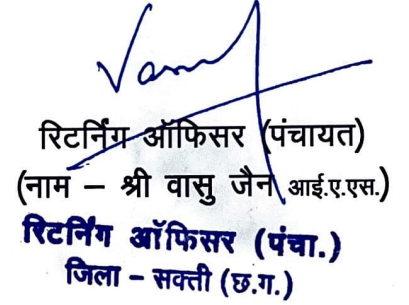 रिटर्निंग ऑफिसर (पंचायत)
(नाम – श्री वासु जैन आई.ए.एस.)
रिटर्निंग ऑफिसर (पंचा.)
जिला – सक्ती (छ.ग.)